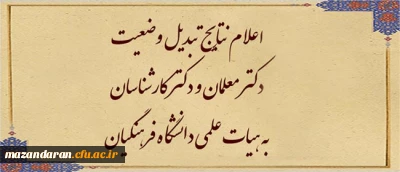 اعلام نتایج تبدیل وضعیت
دکتر معلمان و دکتر کارشناسان
به هیات علمی دانشگاه فرهنگیان
mazandaran.cfu.ac.ir